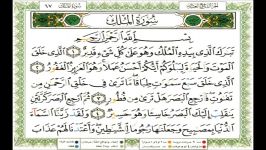 سُورَةُ المُلْكِ
بِسْمِ اللَّهِ الرَّحْمَٰنِ الرَّحِيمِ
تَبَٰرَكَ الَّذِي بِيَدِهِ الْمُلْكُ وَهُوَ عَلَىٰ كُلِّ شَيْءٍ قَدِيرٌ ١ الَّذِي خَلَقَ
الْمَوْتَ وَالْحَيَوٰةَ لِيَبْلُوَكُمْ أَيُّكُمْ أَحْسَنُ عَمَلًا وَهُوَ الْعَزِيزُ الْغَفُورُ ٢
الَّذِي خَلَقَ سَبْعَ سَمَٰوَٰتٍ طِبَاقًا مَّا تَرَىٰ فِي خَلْقِ الرَّحْمَٰنِ مِن
تَفَٰوُتٍ فَارْجِعِ الْبَصَرَ هَلْ تَرَىٰ مِن فُطُورٍ ٣ ثُمَّ ارْجِعِ الْبَصَرَ
كَرَّتَيْنِ يَنقَلِبْ إِلَيْكَ الْبَصَرُ خَاسِئًا وَهُوَ حَسِيرٌ ٤ وَلَقَدْ زَيَّنَّا السَّمَاءَ
الدُّنْيَا بِمَصَٰبِيحَ وَجَعَلْنَٰهَا رُجُومًا لِّلشَّيَٰطِينِ وَأَعْتَدْنَا لَهُمْ عَذَابَ